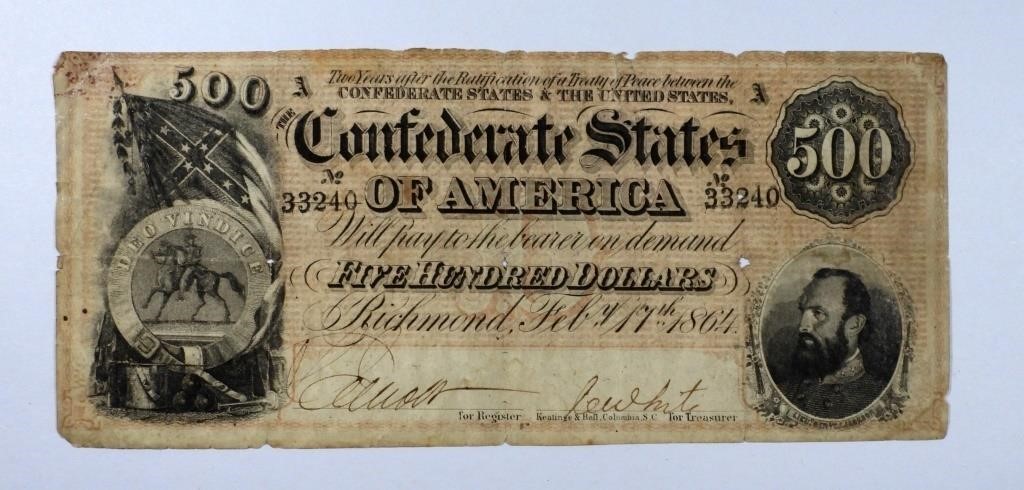 500 A Two Years after the Ratification of a Treaty of Peace between the A
CONFEDERATE STATES & THE UNITED STATES,
THE Confederate States 500
No 33240 OF AMERICA No 33240
DEO VINDICE
Will pay to the bearer on demand
FIVE HUNDRED DOLLARS
Richmond, Feby 17th 1864.
for Register Keatinge & Ball, Columbia, S.C. for Treasurer